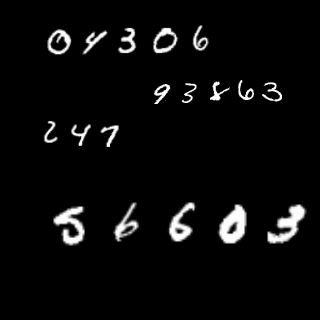 04306
93863
247
56603